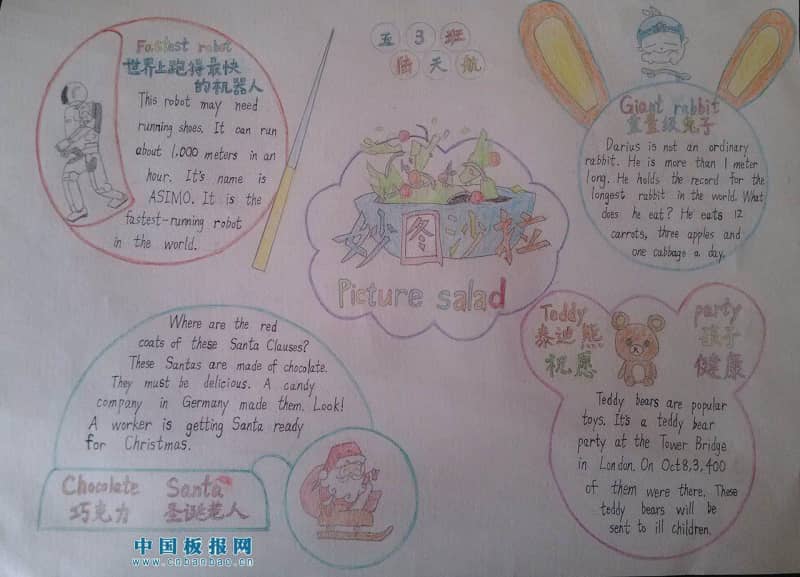 Fastest robot
世界上跑得最快
的机器人
This robot may need
running shoes. It can run
about 1,000 meters in an
hour. It's name is
ASIMO. It is the
fastest-running robot
in the world.
五3班
陆天航
妙图沙拉
Picture salad
Giant rabbit
重量级兔子
Darius is not an ordinary
rabbit. He is more than 1 meter
long. He holds the record for the
longest rabbit in the world. What
does he eat? He eats 12
carrots, three apples and
one cabbage a day.
Where are the red
coats of these Santa Clauses?
These Santas are made of chocolate.
They must be delicious. A candy
company in Germany made them. Look!
A worker is getting Santa ready
for Christmas.
Chocolate Santa
巧克力 圣诞老人
Teddy party
泰迪熊 孩子
祝愿 健康
Teddy bears are popular
toys. It's a teddy bear
party at the Tower Bridge
in London. On Oct8,3,400
of them were there. These
teddy bears will be
sent to ill children.
中国板报网
www.cnbanbao.cn